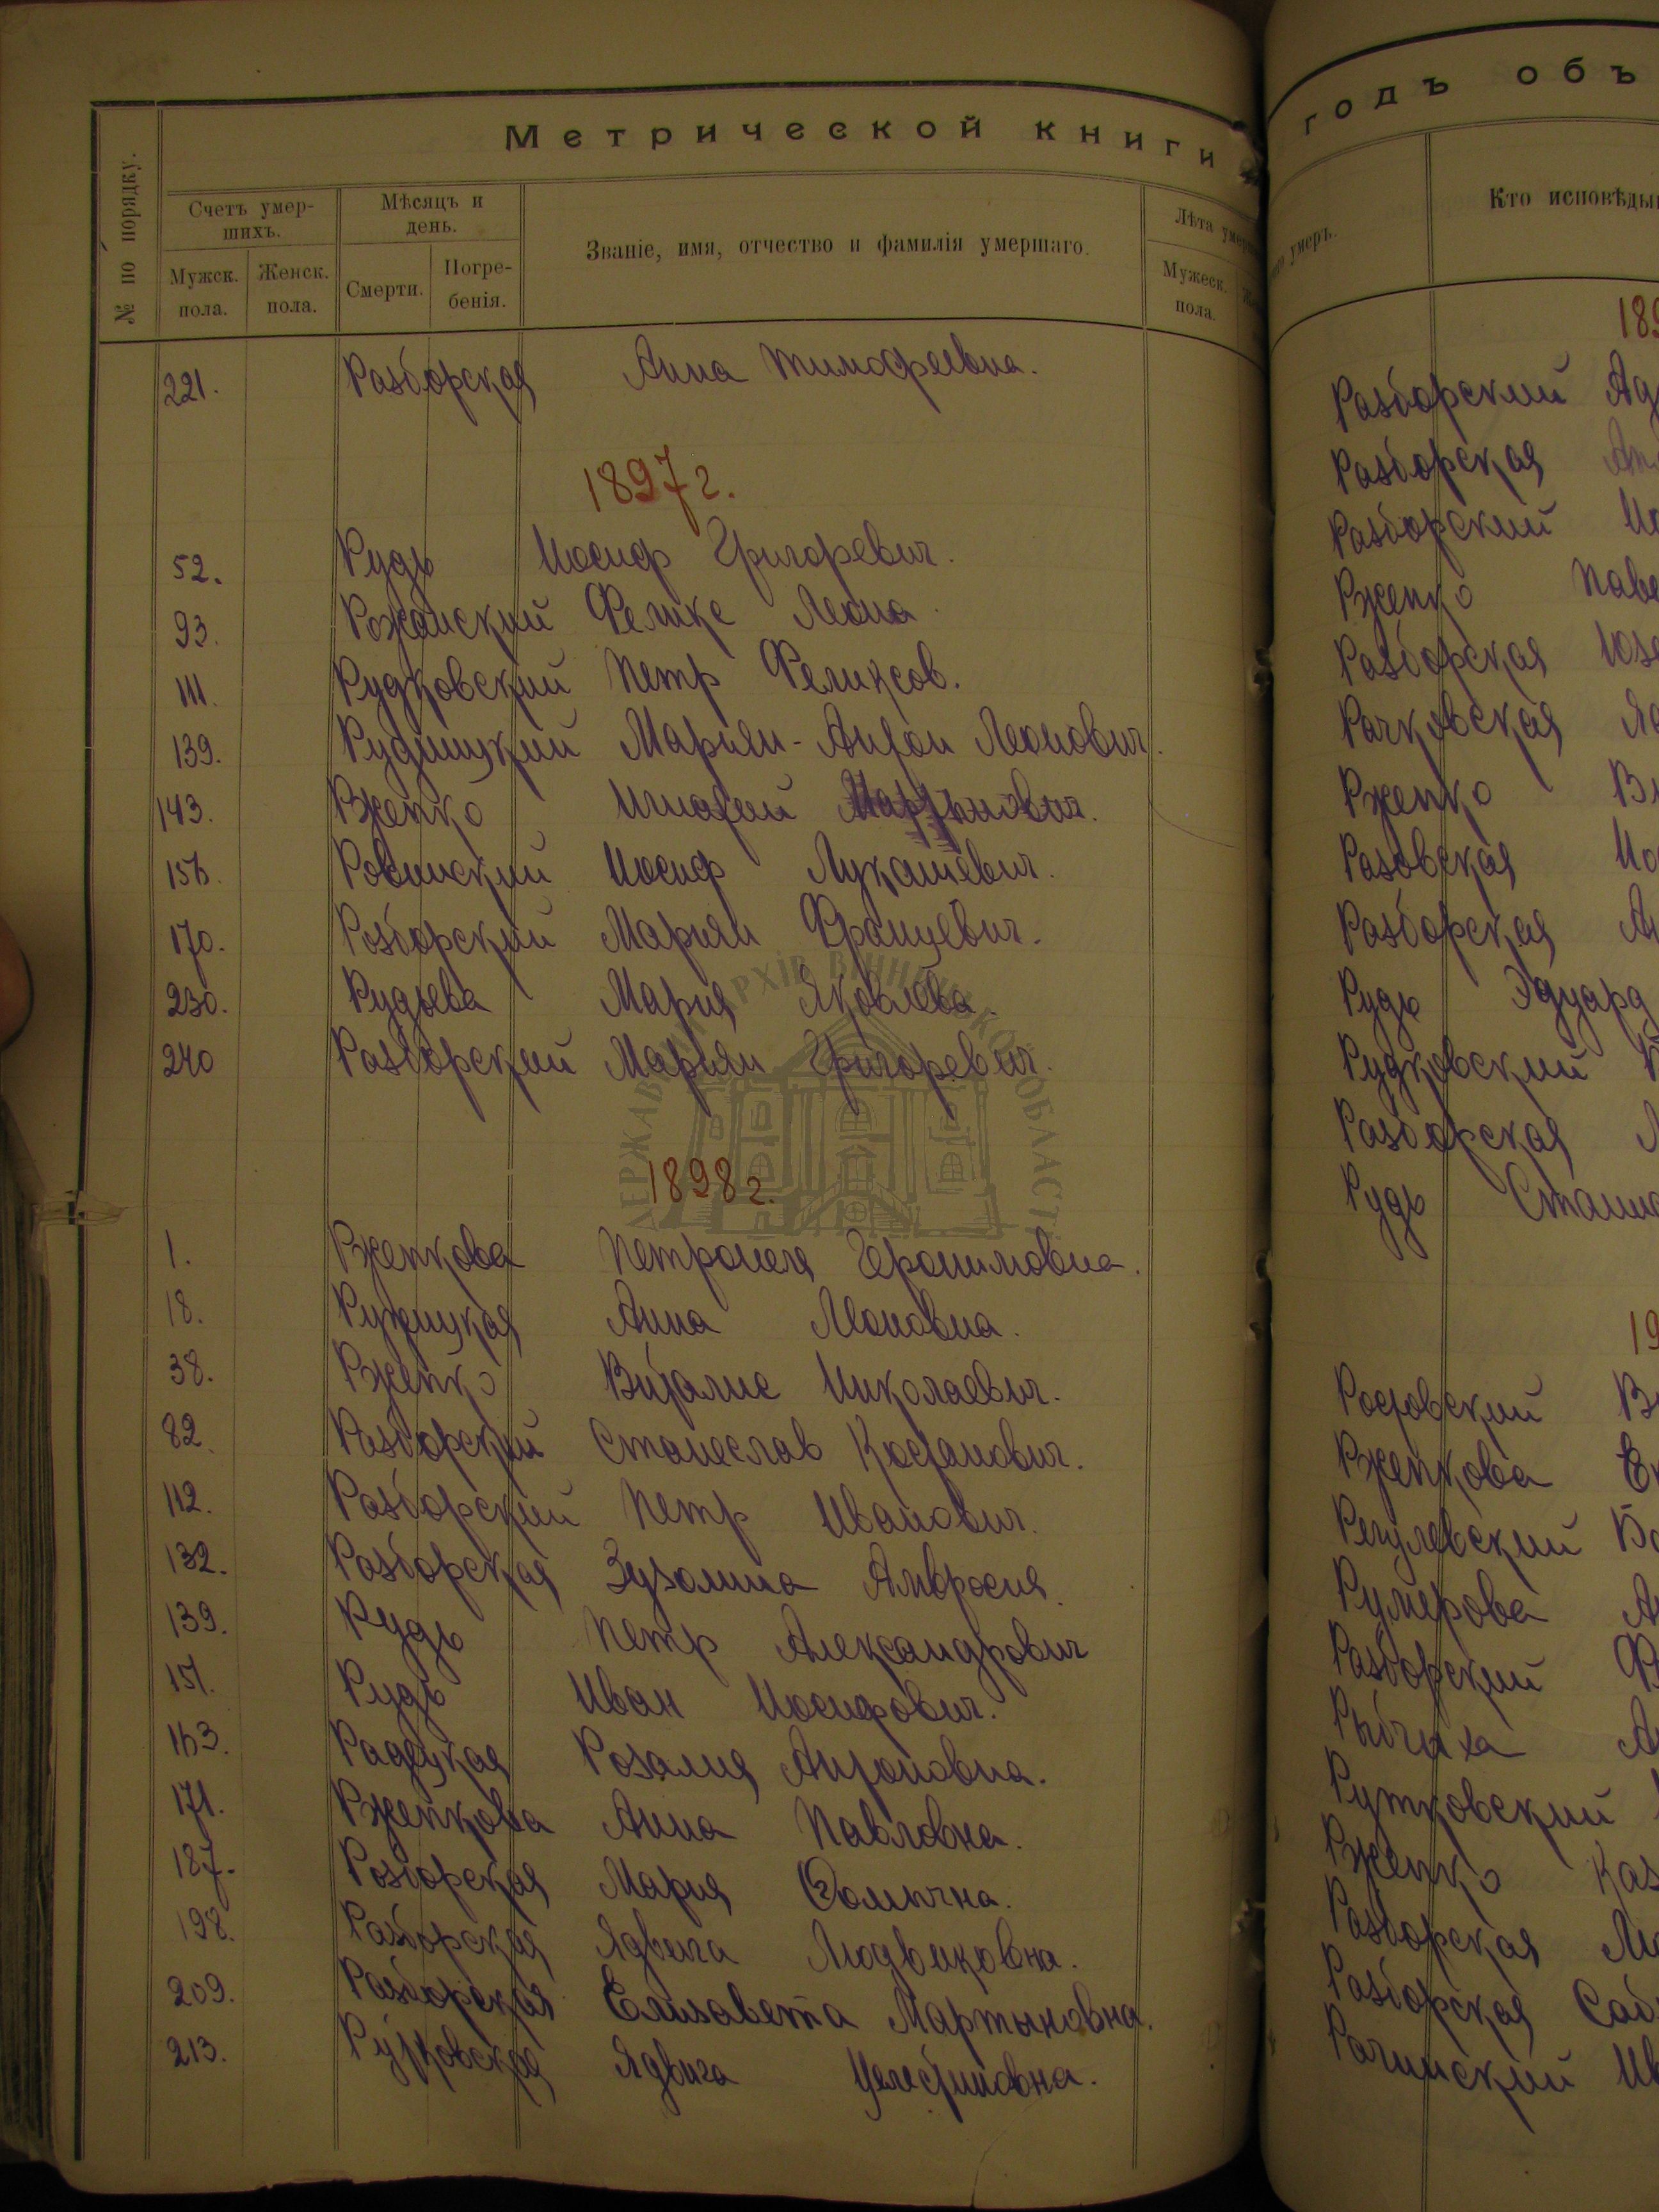 Метрической книги
№ по порядку.
Счетъ умер-
шихъ.
Мужск.
пола.
Женск.
пола.
Мѣсяцъ и
день.
Смерти.
Погре-
бенія.
Званіе, имя, отчество и фамилія умершаго.
Лѣта
Мужеск.
пола.
221. Разборская Анна Тимофеевна.
1897 г.
52. Рудь Иосиф Григоревич.
93. Рожанский Феликс Леона
111. Рудковский Петр Феликсов.
139. Рудницкий Мариян-Антон Леонович.
143. Рженко Игнатий Мартынович.
156. Ровинский Иосиф Лукашевич.
170. Розборский Мариян Францевич.
230. Рудьева Мария Яковлева.
240 Разборский Мариян Григоревич.
1898 г.
1. Рженкова Петронеля Геронимовна.
18. Ружицкая Анна Леоновна.
38. Рженко Виталис Николаевич.
82. Разборский Станеслав Костанович.
112. Разборский Петр Иванович.
132. Разборская Зузанна Амвросия.
139. Рудь Петр Александрович
151. Рудь Иван Иосифович.
163. Радецкая Розалия Антоновна.
171. Рженкова Анна Павловна.
187. Розборская Мария Фомична.
198. Разборская Ядвига Людвиковна.
209. Разборская Елизавета Мартыновна.
213. Рутковская Ядвига Целестиновна.
ДЕРЖАВНИЙ АРХІВ ВІННИЦЬКОЇ ОБЛАСТІ
годъ объ
умеръ.
Кто исповѣды
189
Разборский
Разборская
Разборский
Рженко Паве
Разборская Юзе
Рачковская
Рженко
Разовская
Разборская
Рудь Эдуард
Рудковский
Разборская
Рудь Стани
19
Росовский
Рженкова
Регулевский
Румерова
Разборский
Рыбчиха
Рутковский
Рженко Каз
Разборская
Розборская
Рачинский